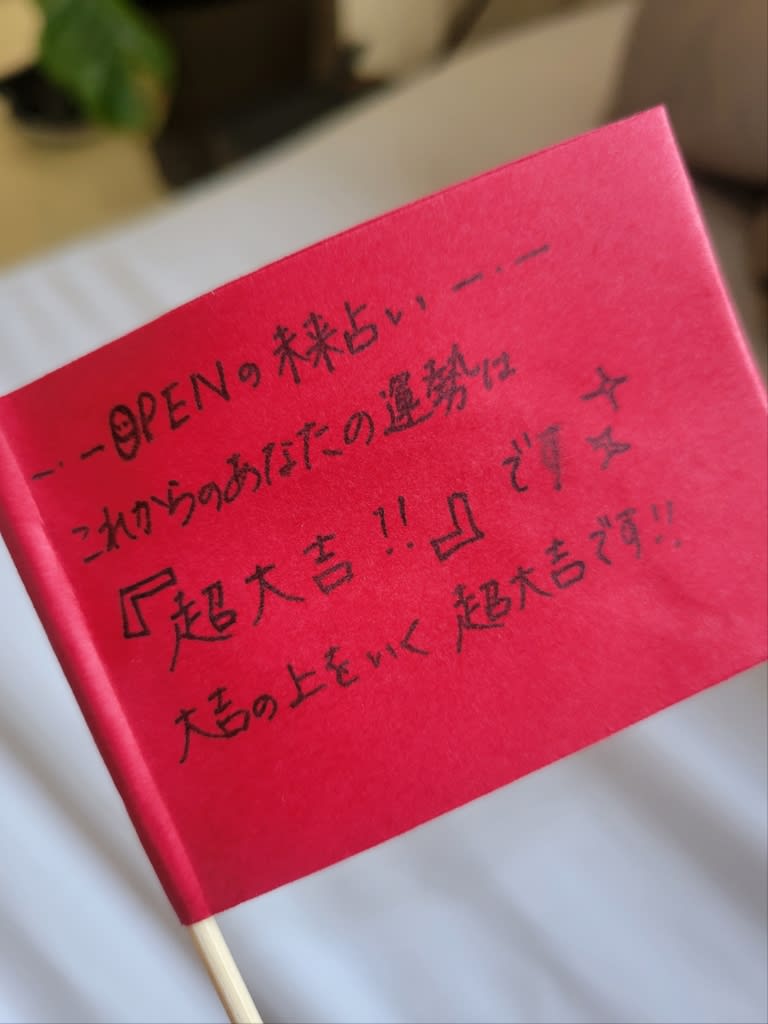 ー・ーOPENの未来占いー・ー
これからのあなたの運勢は
『超大吉!!』です☆
大吉の上をいく超大吉です!!